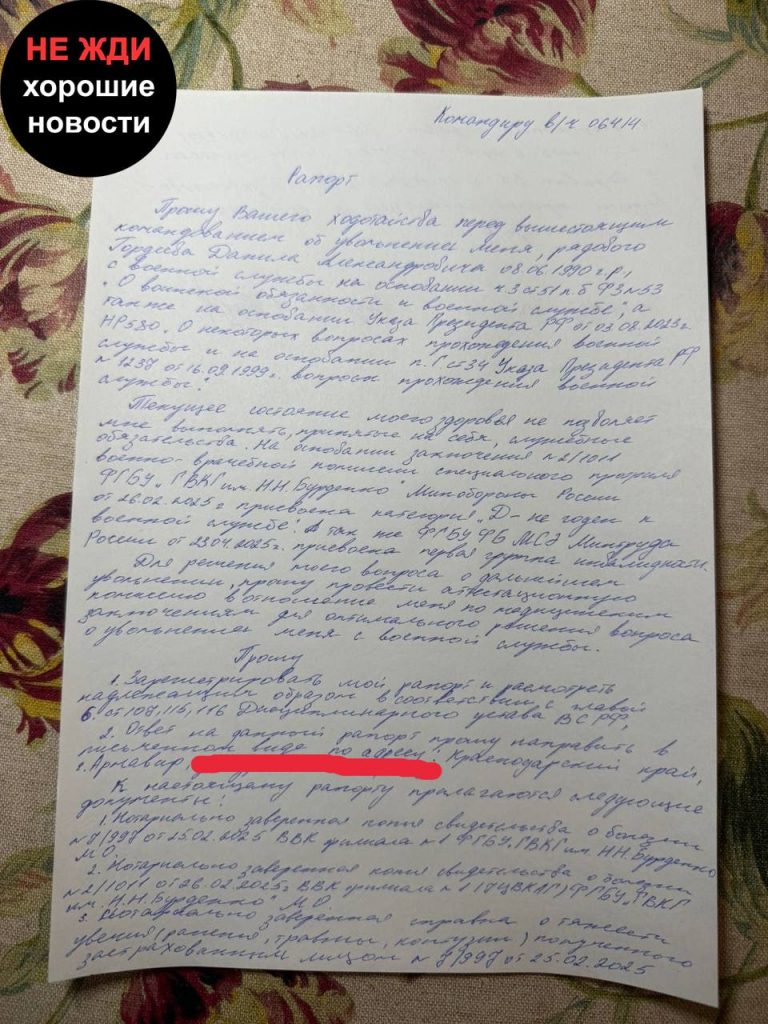 НЕ ЖДИ
хорошие
новости
Командиру в/ч 06414
Рапорт
Прошу Вашего ходотайства перед вышестоящим
командованием об увольнение меня, рядового
Гордеева Данила Александровича 08.06.1990 г.р,
с военной службы на основании ч.3 ст 51 п.б ФЗ №53
"О воинской обязанности и военной службе", а
также на основании Указа Президента РФ от 03.08.2023г.
№580 "О некоторых вопросах прохождения военной
службы и на основании п.Г ст 34 Указа Президента РФ
№1237 от 16.09.1999г. вопросы прохождения военной
службы".
Текущее состояние моего здоровья не позволяет
мне выполнять, принятые на себя, служебные
обязательства. На основании заключения №2/1011
военно-врачебной комиссии специального профиля
ФГБУ "ГВКГ им. Н.Н.Бурденко" Минобороны России
от 26.02.2025г присвоена категория "Д - не годен к
военной службе". А так же ФГБУ ФБ МСЭ Минтруда
России от 23.04.2025г. присвоена первая группа инвалидности.
Для решения моего вопроса о дальнейшем
увольнении, прошу провести аттестационную
комиссию в отношение меня по медицинским
заключениям для оптимального решения вопроса
о увольнение меня с военной службы.
Прошу
1. Зарегистрировать мой рапорт и расмотреть
надлежащим образом в соответствии с главой
6. ст 107, 115, 116 Дисциплинарного устава ВС РФ,
2. Ответ на данный рапорт прошу направить в
письменном виде по адресу: Краснодарский край,
г. Армавир,
К настоящему рапорту прилагаются следующие
документы:
1. Нотариально заверенная копия свидетельства о болезни
№7/997 от 25.02.2025 ВВК филиала №1 ФГБУ "ГВКГ им. Н.Н.Бурденко
МО.
2. Нотариально заверенная копия свидетельства о болезни
№2/1011 от 26.02.2025г ВВК филиала №1 ФГБУ "ГВКГ
им. Н.Н.Бурденко" МО.
3. Нотариально заверенная справка о тяжести
увечия (ранения, травмы, контузии) полученного
застрахованным лицом №7/997 от 25.02.2025